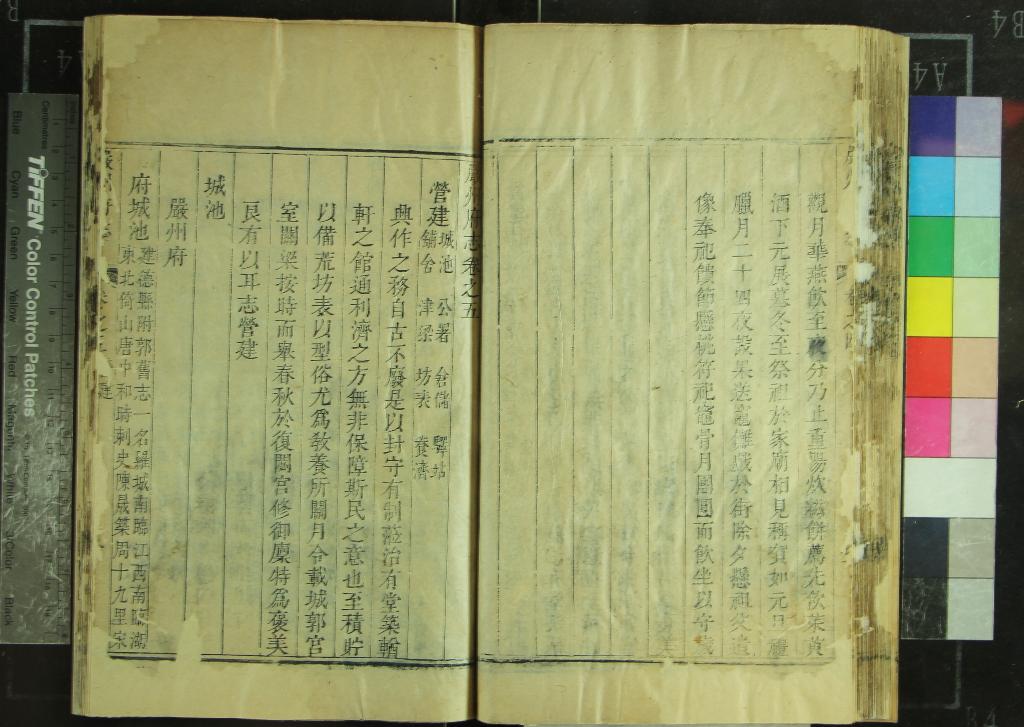 觀月華燕飲至夜分乃止重陽炊糍餅薦先飲茱萸
酒下元展墓冬至祭祖於家廟相見稱賀如元旦禮
臘月二十四夜設果送竈儺戲於街除夕懸祖父遺
像奉祀饋節懸桃符祀竈骨月團圓而飲坐以守歲
嚴州府志卷之五
營建 城池 公署 倉儲 驛站
舖舍 津梁 坊表 養濟
興作之務自古不廢是以封守有制蒞治有堂築輶
軒之館通利濟之方無非保障斯民之意也至積貯
以備荒坊表以型俗尤為敎養所關月令載城郭宮
室關梁按時而舉春秋於復閟宮修御廩特為褒美
良有以耳志營建
城池
嚴州府
府城池 建德縣附郭舊志一名羅城南臨江西南臨湖
東北倚山唐中和時刺史陳晟築周十九里宋
TIFFEN Color Control Patches
Centimetres
Blue
Cyan
Green
Yellow
Red
Magenta
White
3/Color
Black
A4
B4